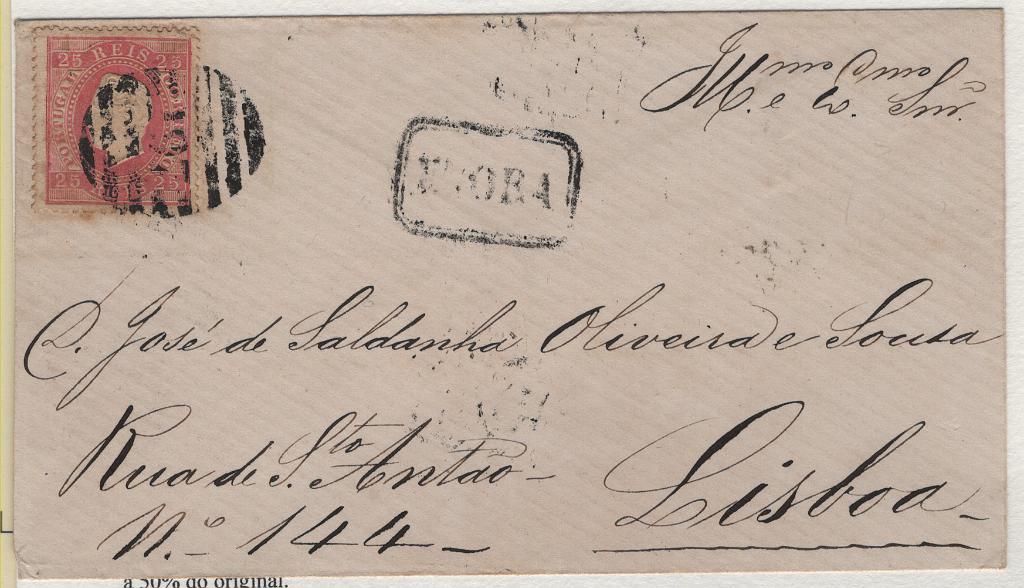 25 REIS 25
PORTUGAL
25 25
EVORA
Illmo e Exmo Snr.
D. José de Saldanha Oliveira e Sousa
Rua de Sto Antão -
N.o - 144 -
Lisboa -
a 50% do original.